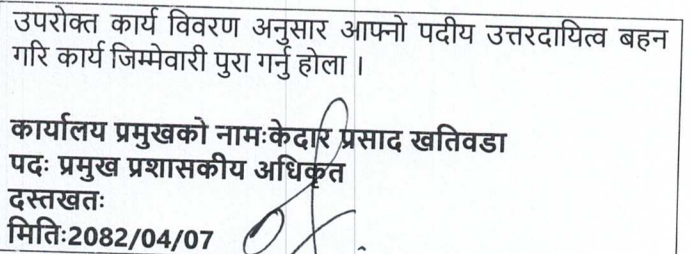 उपरोक्त कार्य विवरण अनुसार आफ्नो पदीय उत्तरदायित्व बहन
गरि कार्य जिम्मेवारी पुरा गर्नु होला ।
कार्यालय प्रमुखको नामःकेदार प्रसाद खतिवडा
पदः प्रमुख प्रशासकीय अधिकृत
दस्तखतः
मितिः2082/04/07